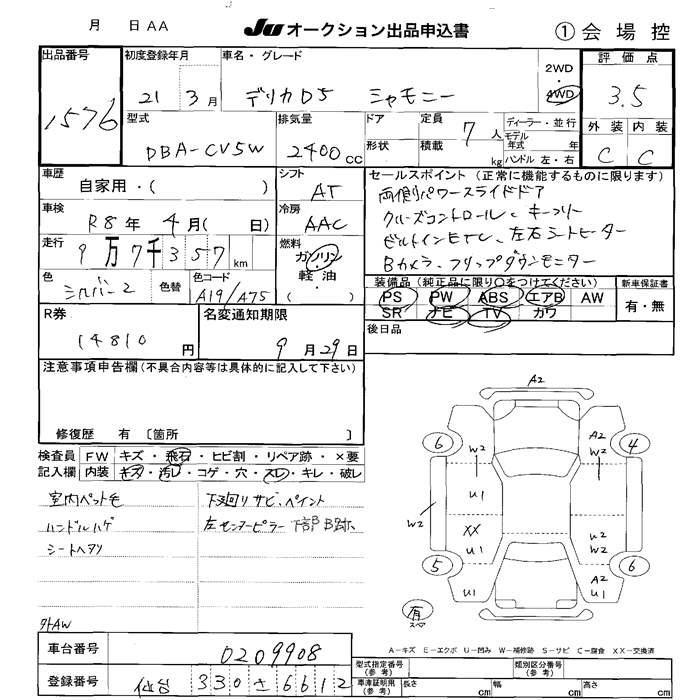 月 日 AA
JU オークション出品申込書
① 会場控
出品番号
1576
初度登録年月
21 3月
車名・グレード
デリカD5 シャモニー
2WD
・
4WD
評価点
3.5
型式
DBA-CV5W
排気量
2400cc
ドア
形状
定員
7人
積載
kg
ディーラー・並行
モデル
年式 年
ハンドル 左・右
外装 内装
C C
車歴
自家用・( )
シフト
AT
車検
R8年 4月( 日)
冷房
AAC
走行
9万7千357km
燃料
ガソリン
軽油
( )
色
シルバー2
色替
色コード
A19/A75
セールスポイント(正常に機能するものに限ります)
両側パワースライドドア
クルーズコントロール、キーフリー
ビルトインETC、左右シートヒーター
Bカメラ、フリップダウンモニター
装備品(純正品に限り○をつけてください) 新車保証書
PS PW ABS エアB AW
SR ナビ TV カワ
有・無
後日品
R券
14810円
名変通知期限
9月29日
注意事項申告欄(不具合内容等は具体的に記入して下さい)
修復歴 有〔箇所 〕
検査員 FW キズ・飛石・ヒビ割・リペア跡・×要
記入欄 内装 キズ・汚レ・コゲ・穴・スレ・キレ・破レ
室内ペット毛
ハンドルハゲ
シートヘタリ
下回りサビ、ペイント
左センターピラー下部B跡
外AW
A2
6
4
W2
A2
W2
U1
W2
XX
U1
U2
W2
5
6
A2
U1
有
スペア
A-キズ E-エクボ U-凹み W-補修跡 S-サビ C-腐食 XX-交換済
車台番号
0209908
登録番号
仙台 330 さ 6612
型式指定番号
(参考)
類別区分番号
(参考)
車庫証明用
(参考)
長さ cm
幅 cm
高さ cm